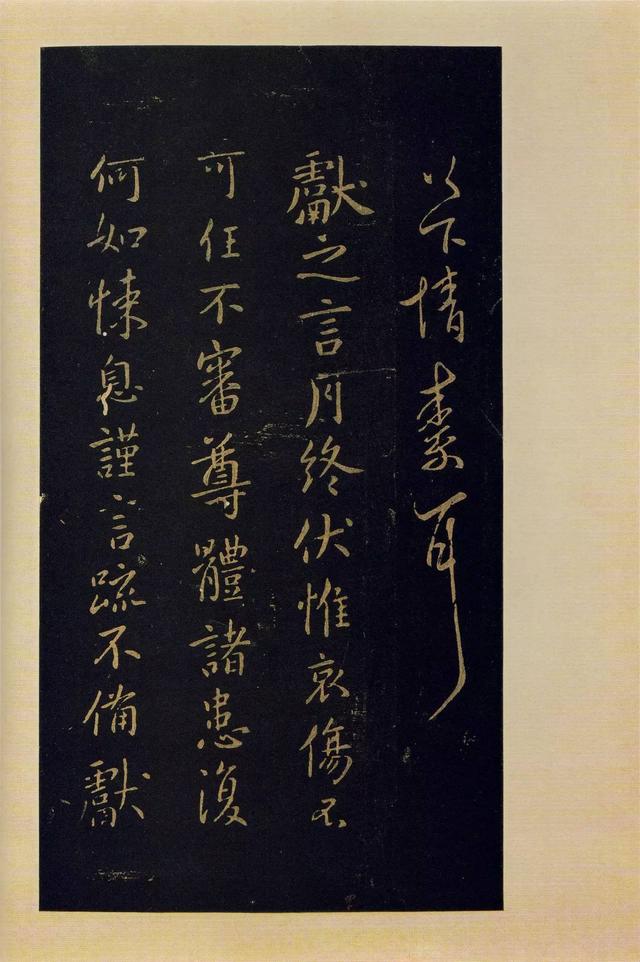 以下情耳
獻之言月終伏惟哀傷不
可任不審尊體諸患復
何如悚息謹言疏不備獻